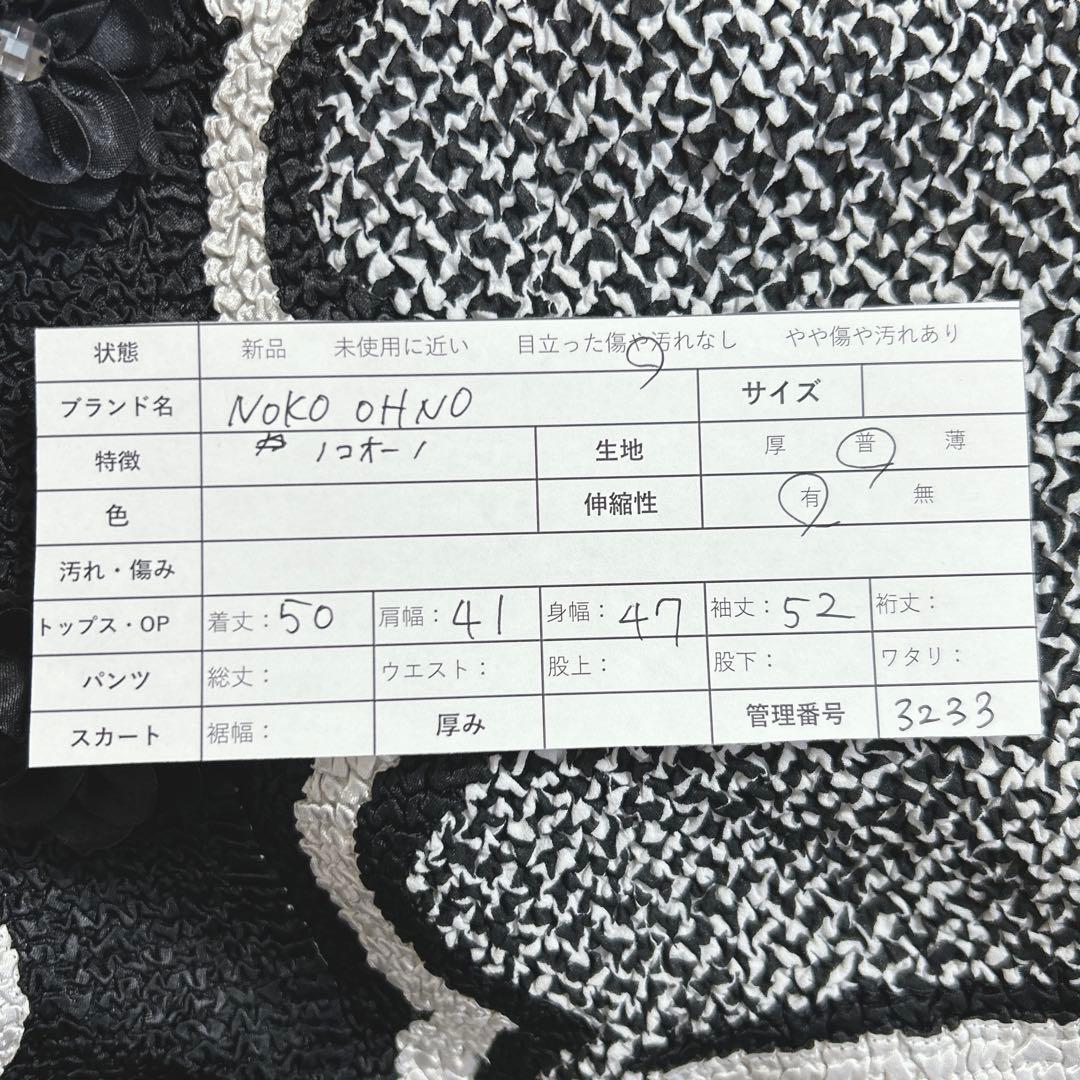 状態 新品 未使用に近い 目立った傷や汚れなし やや傷や汚れあり
ブランド名 NOKO OHNO サイズ
特徴 ノコオーノ 生地 厚 普 薄
色 伸縮性 有 無
汚れ・傷み
トップス・OP 着丈：50 肩幅：41 身幅：47 袖丈：52 裄丈：
パンツ 総丈： ウエスト： 股上： 股下： ワタリ：
スカート 裾幅： 厚み 管理番号 3233